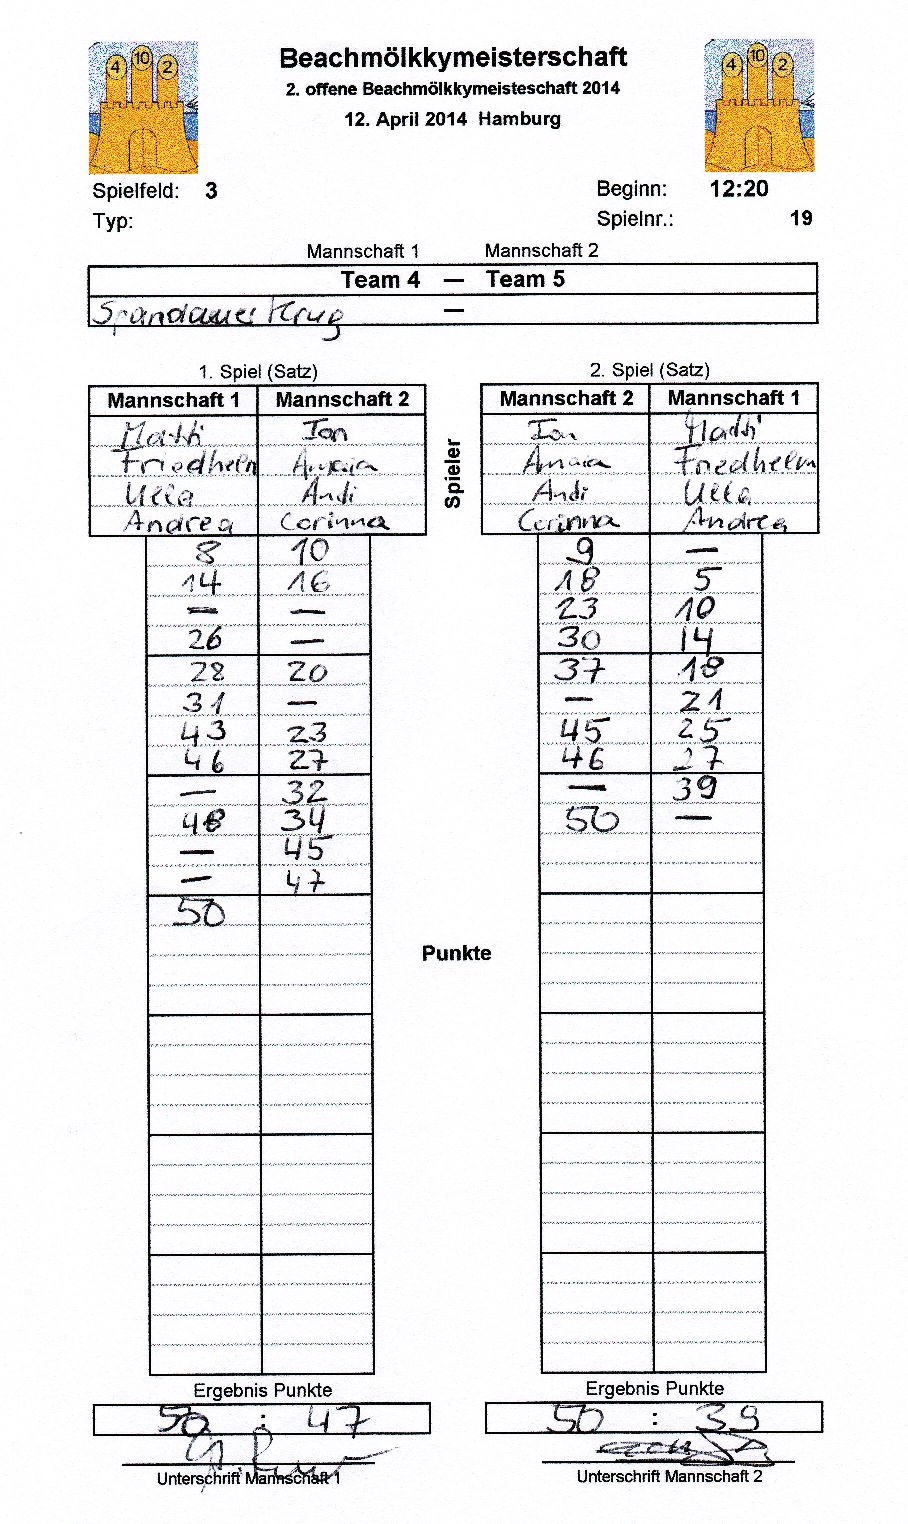 4 10 2
4 10 2
Beachmölkkymeisterschaft
2. offene Beachmölkkymeisteschaft 2014
12. April 2014 Hamburg
Spielfeld: 3
Beginn: 12:20
Typ:
Spielnr.: 19
Mannschaft 1 Mannschaft 2
Team 4 — Team 5
Spandauer Krug —
1. Spiel (Satz)
Mannschaft 1 Mannschaft 2
Matti Ian
Friedhelm Amaia
Ulla Andi
Andrea Corinna
8 10
14 16
— —
26 —
28 20
31 —
43 23
46 27
— 32
48 34
— 45
— 47
50
Spieler
Punkte
2. Spiel (Satz)
Mannschaft 2 Mannschaft 1
Ian Matti
Amaia Friedhelm
Andi Ulla
Corinna Andrea
9 —
18 5
23 10
30 14
37 18
— 21
45 25
46 27
— 39
50 —
Ergebnis Punkte
50 : 47
Unterschrift Mannschaft 1
Ergebnis Punkte
50 : 39
Unterschrift Mannschaft 2